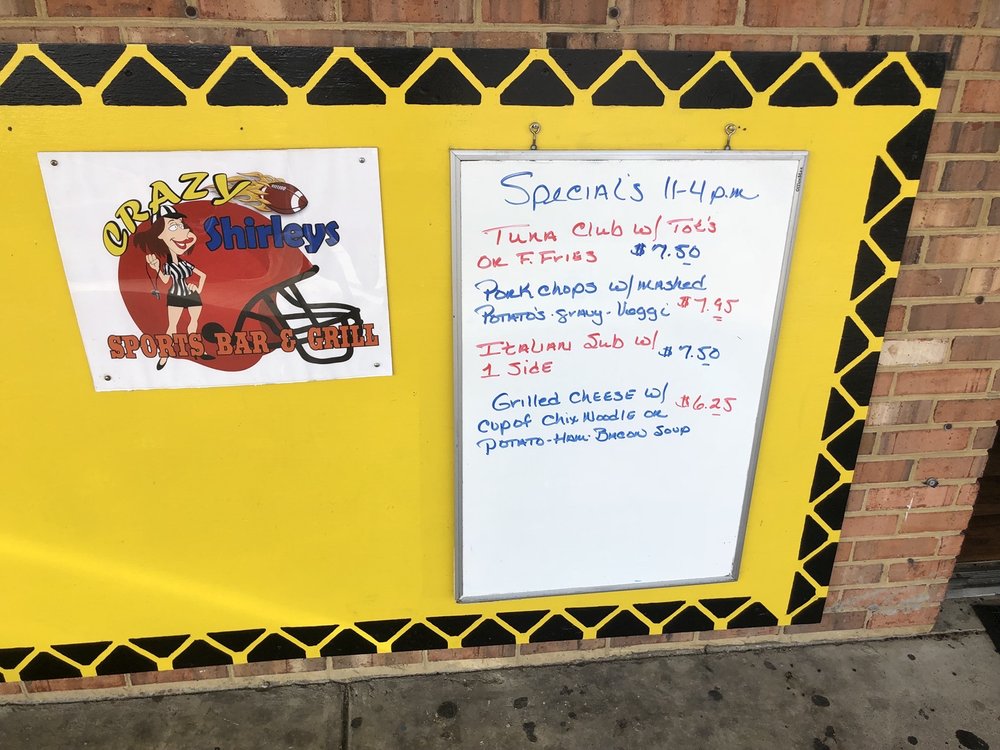 CRAZY
Shirleys
SPORTS BAR & GRILL
Special's 11-4 p.m
Tuna Club w/ Tot's
or F. Fries $7.50
Pork Chops w/ mashed
Potato's - gravy - Veggi $7.95
Italian Sub w/ $7.50
1 Side
Grilled Cheese w/ $6.25
cup of Chix Noodle or
Potato-Ham-Bacon Soup